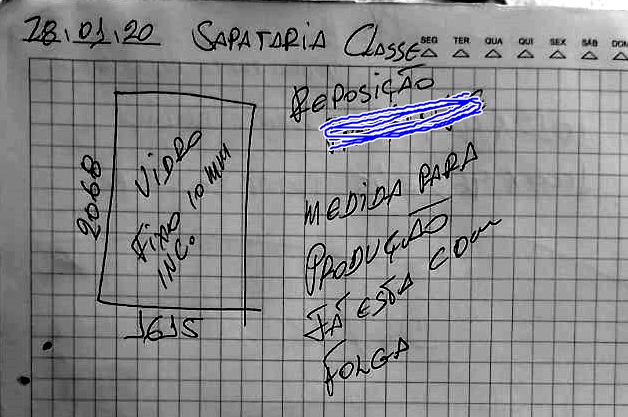 28.01.20 SAPATARIA CLASSE
SEG TER QUA QUI SEX SÁB DOM
REPOSIÇÃO
2068
VIDRO
FIXO 10 MM
INC.
1615
MEDIDA PARA
PRODUÇÃO
JÁ ESTÁ COM
FOLGA